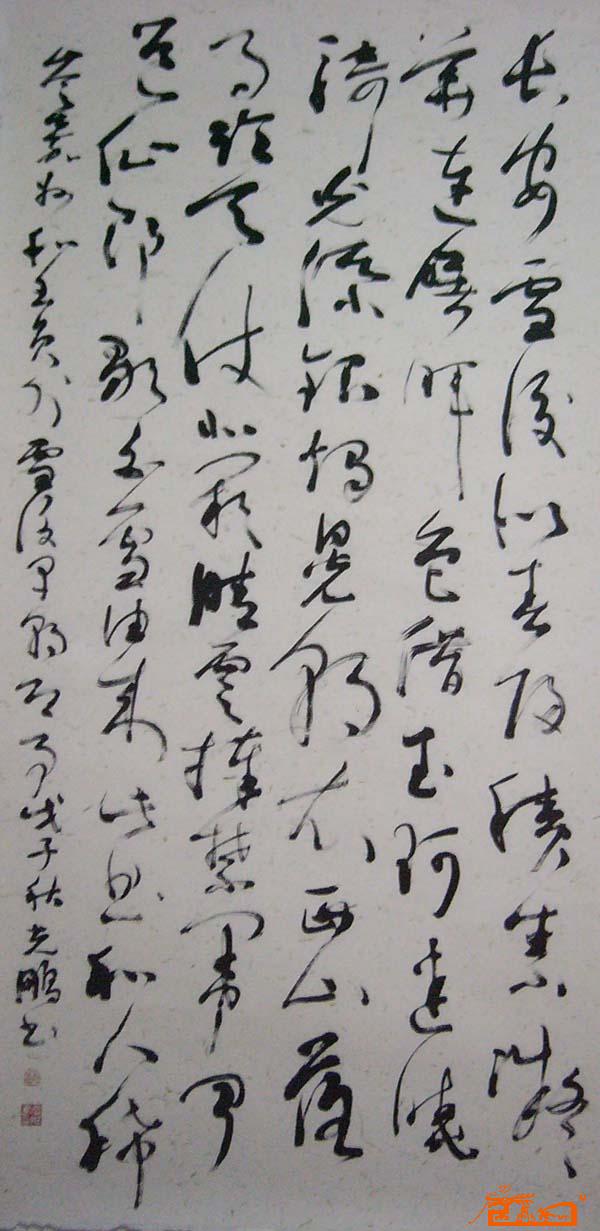 長安雪後似春歸積素凝
華連曙暉色借玉珂迷曉
騎光添銀燭晃朝衣西山落
月臨天仗北闕晴雲捧禁闈聞
道仙郎歌白雪由來此曲和人稀
岑嘉州和王員外雪後早朝即事戊子秋光鵬書